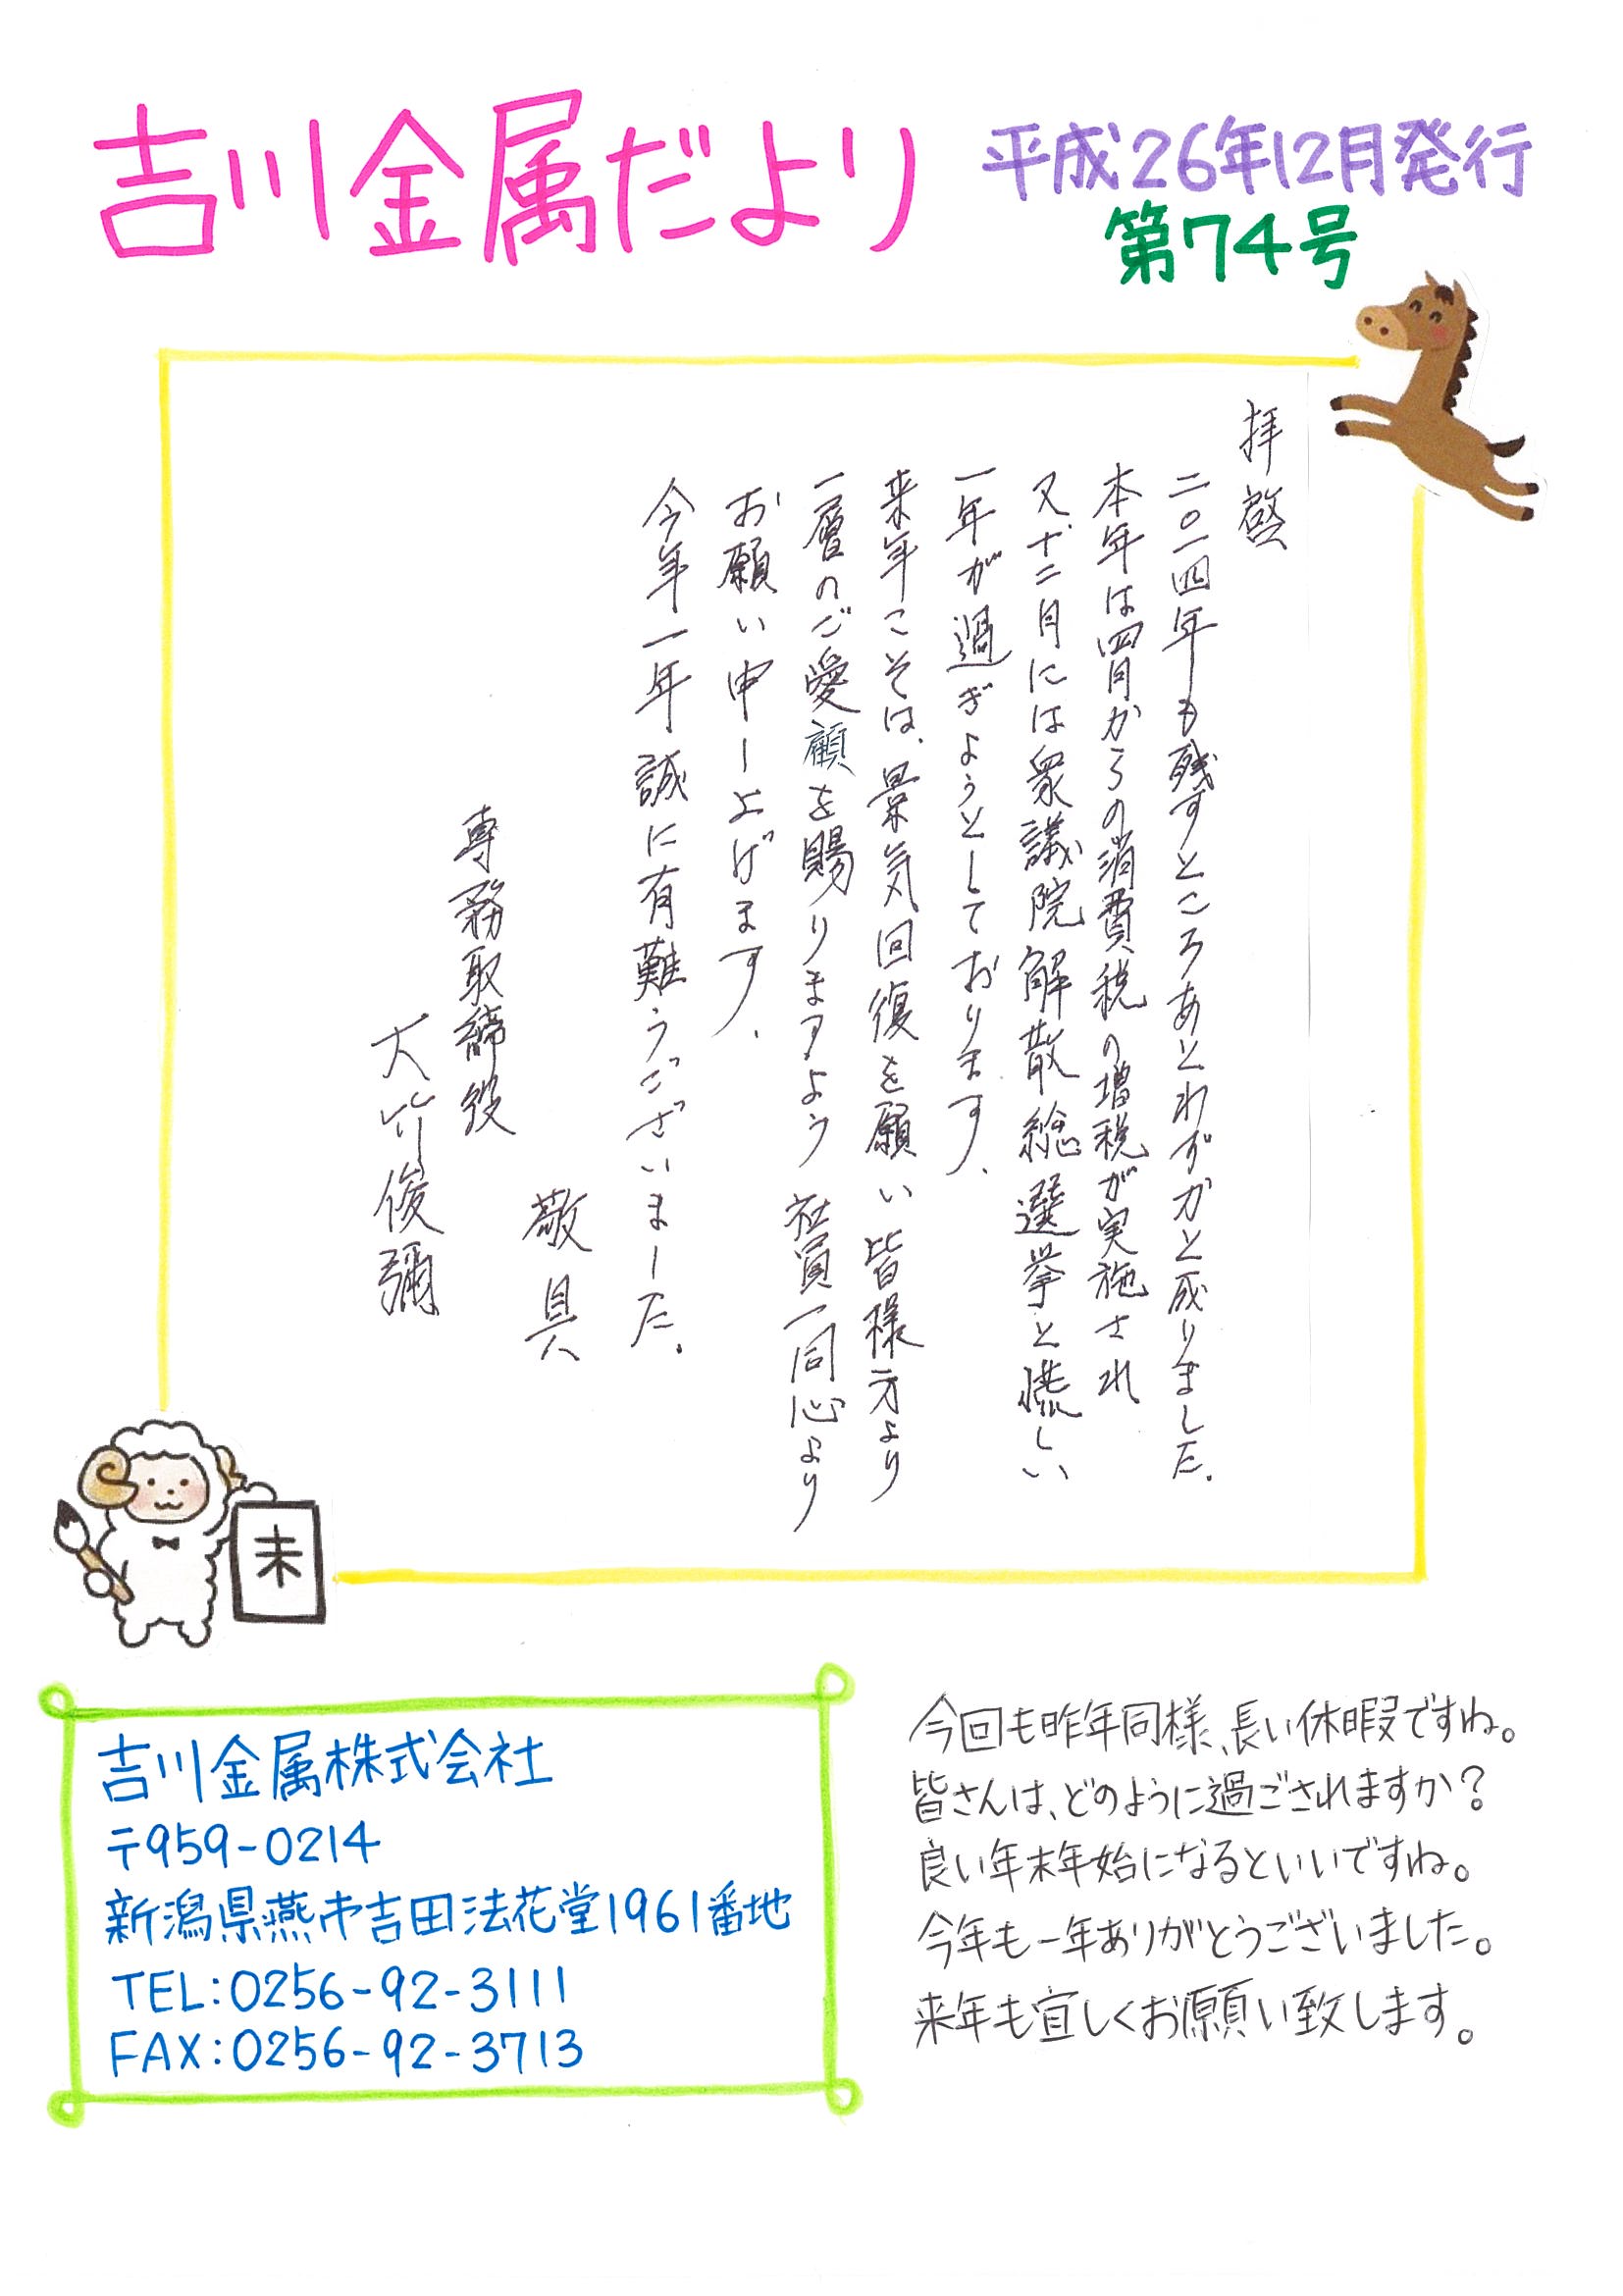 吉川金属だより
平成26年12月発行
第74号
拝啓
二〇一四年も残すところあとわずかと成りました。
本年は四月からの消費税の増税が実施され
又十二月には衆議院解散総選挙と慌しい
一年が過ぎようとしております。
来年こそは、景気回復を願い皆様方より
一層のご愛顧を賜りますよう社員一同心より
お願い申し上げます。
今年一年誠に有難うございました。
敬具
専務取締役
大竹俊彌
未
吉川金属株式会社
〒959-0214
新潟県燕市吉田法花堂1961番地
TEL:0256-92-3111
FAX:0256-92-3713
今回も昨年同様、長い休暇ですね。
皆さんは、どのように過ごされますか？
良い年末年始になるといいですね。
今年も一年ありがとうございました。
来年も宜しくお願い致します。